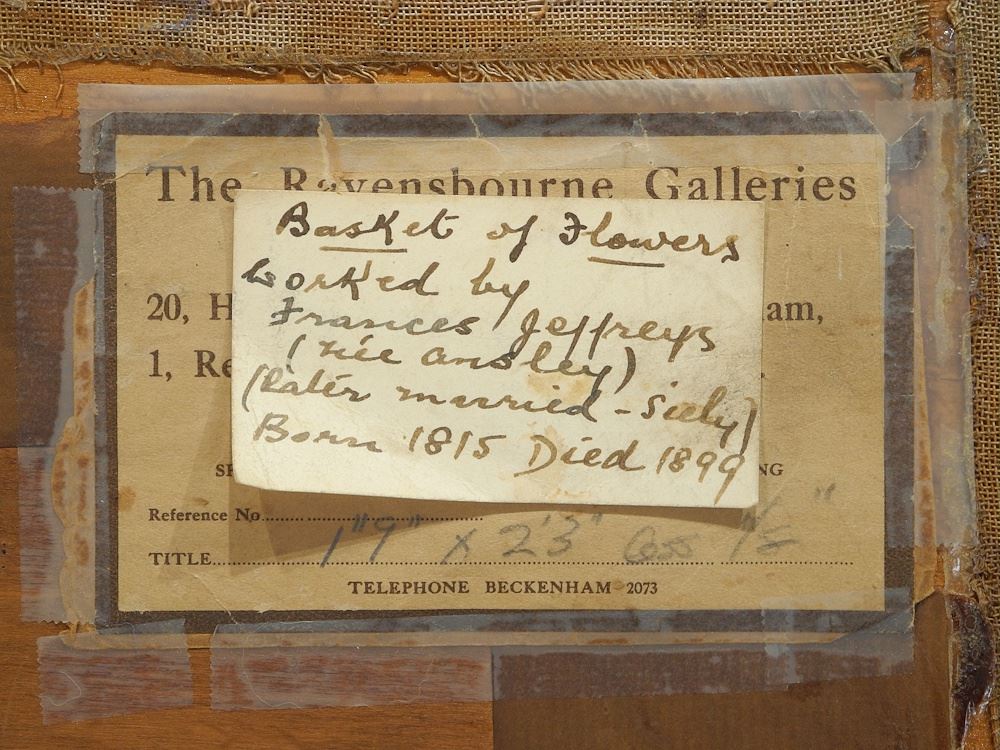 The Ravensbourne Galleries
Basket of Flowers
Worked by
Frances Jeffreys
(née Ansley)
(Later married - Siely)
Born 1815 Died 1899
20, H am,
1, Re
SP NG
Reference No
1"9" x 2'3" Less 1/2"
TITLE
TELEPHONE BECKENHAM 2073